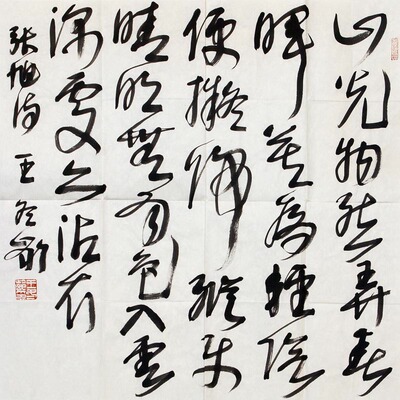 山光物態弄春
暉莫為輕陰
便擬歸縱使
晴明無雨色入雲
深處亦沾衣
張旭詩 王